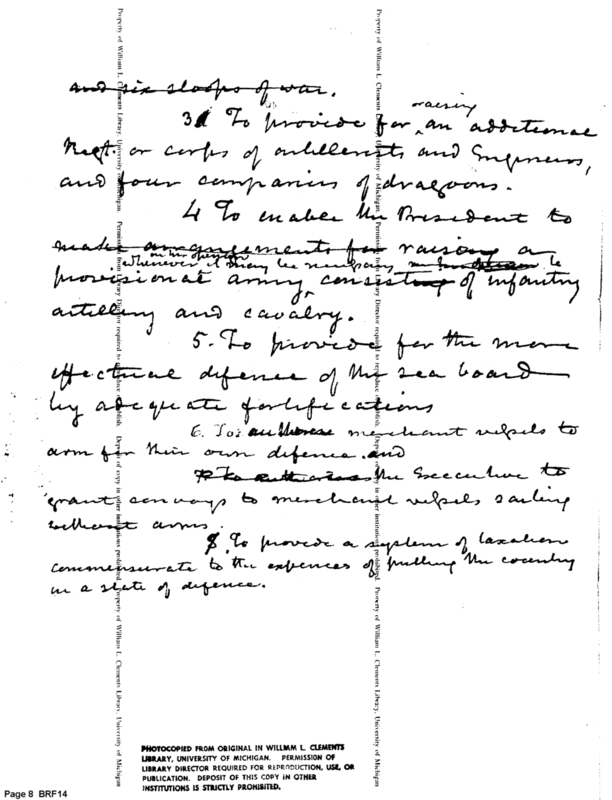 and six sloops of war.
raising
3d To provide for an additional
Regt. or corps of artillerists and Engineers,
and four companies of dragoons.
4 To enable the President to
make arrangements for raising a
whenever in his opinion it may be necessary to
provisional army consisting of infantry
artillery and cavalry.
5. To provide for the more
effectual defence of the sea board
by adequate fortifications
6. To authorise merchant vessels to
arm for their own defence. and
7 To authorise the Executive to
grant convoys to merchant vessels sailing
without arms.
8. To provide a system of taxation
commensurate to the expences of putting the country
in a state of defence.
Property of William L. Clements Library, University of Michigan. Permission of Library Director required to reproduce or publish. Deposit of copy in other institutions prohibited.
Property of William L. Clements Library, University of Michigan
Property of William L. Clements Library, University of Michigan. Permission of Library Director required to reproduce or publish. Deposit of copy in other institutions prohibited.
Property of William L. Clements Library, University of Michigan
PHOTOCOPIED FROM ORIGINAL IN WILLIAM L. CLEMENTS
LIBRARY, UNIVERSITY OF MICHIGAN. PERMISSION OF
LIBRARY DIRECTOR REQUIRED FOR REPRODUCTION, USE, OR
PUBLICATION. DEPOSIT OF THIS COPY IN OTHER
INSTITUTIONS IS STRICTLY PROHIBITED.
Page 8 BRF14